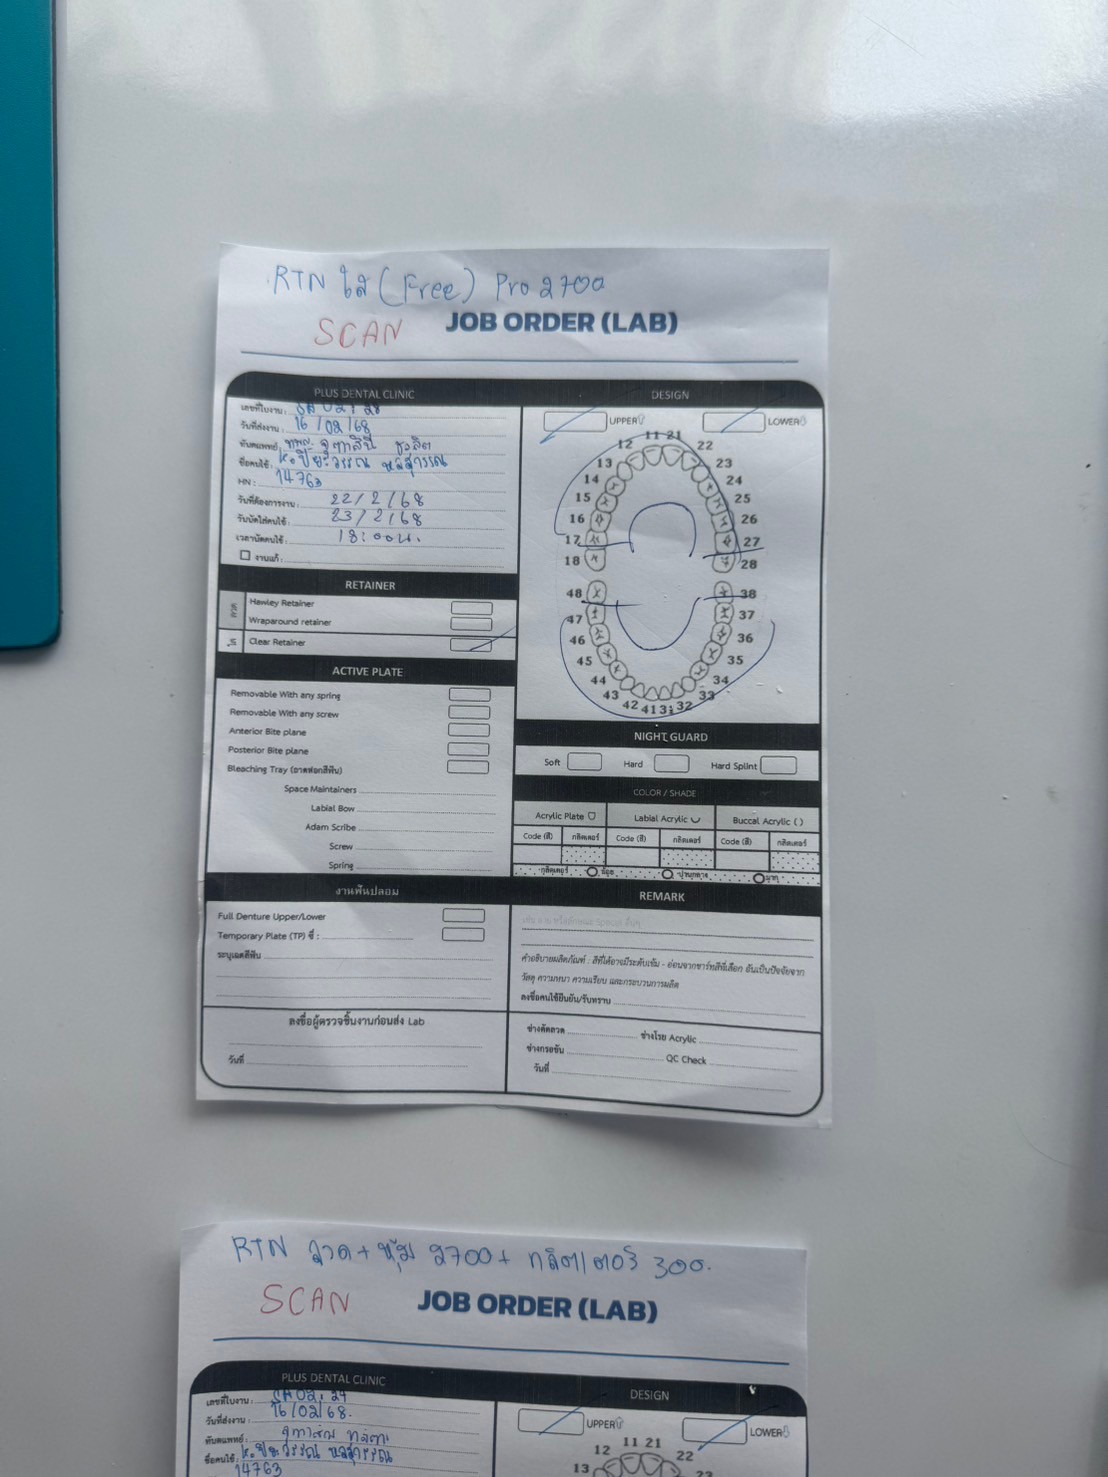 RTN ใส (Free) Pro 2700
SCAN JOB ORDER (LAB)
PLUS DENTAL CLINIC
เลขที่ใบงาน :
วันที่ส่งงาน : 16/02/68
ทันตแพทย์ :
ชื่อคนไข้ :
HN : 14763
วันที่ต้องการงาน : 22/2/68
วันนัดใส่คนไข้ : 23/2/68
เวลานัดคนไข้ : 18:00น.
งานแก้ :
RETAINER
ลวด
Hawley Retainer
Wraparound retainer
ใส
Clear Retainer
ACTIVE PLATE
Removable With any spring
Removable With any screw
Anterior Bite plane
Posterior Bite plane
Bleaching Tray (ถาดฟอกสีฟัน)
Space Maintainers
Labial Bow
Adam Scribe
Screw
Spring
งานฟันปลอม
Full Denture Upper/Lower
Temporary Plate (TP) ซี่ :
ระบุเฉดสีฟัน
ลงชื่อผู้ตรวจชิ้นงานก่อนส่ง Lab
วันที่
DESIGN
UPPER LOWER
11 21
12 22
13 23
14 24
15 25
16 26
17 27
18 28
48 38
47 37
46 36
45 35
44 34
43 33
42 41 31 32
NIGHT GUARD
Soft Hard Hard Splint
COLOR / SHADE
Acrylic Plate Labial Acrylic Buccal Acrylic ( )
Code (สี) กลิตเตอร์ Code (สี) กลิตเตอร์ Code (สี) กลิตเตอร์
กลิตเตอร์ น้อย ปานกลาง มาก
REMARK
คำอธิบายผลิตภัณฑ์ : สีที่ได้อาจมีระดับเข้ม - อ่อนจากชาร์ทสีที่เลือก อันเป็นปัจจัยจาก
วัสดุ ความหนา ความเรียบ และกระบวนการผลิต
ลงชื่อคนไข้ยืนยัน/รับทราบ
ช่างดัดลวด ช่างโรย Acrylic
ช่างกรอขัด QC Check
วันที่
RTN ลวด + หุ้ม 2700 + กลิตเตอร์ 300.
SCAN JOB ORDER (LAB)
PLUS DENTAL CLINIC
เลขที่ใบงาน :
วันที่ส่งงาน : 16/02/68.
ทันตแพทย์ :
ชื่อคนไข้ :
14763
DESIGN
UPPER LOWER
11 21
12 22
13 23